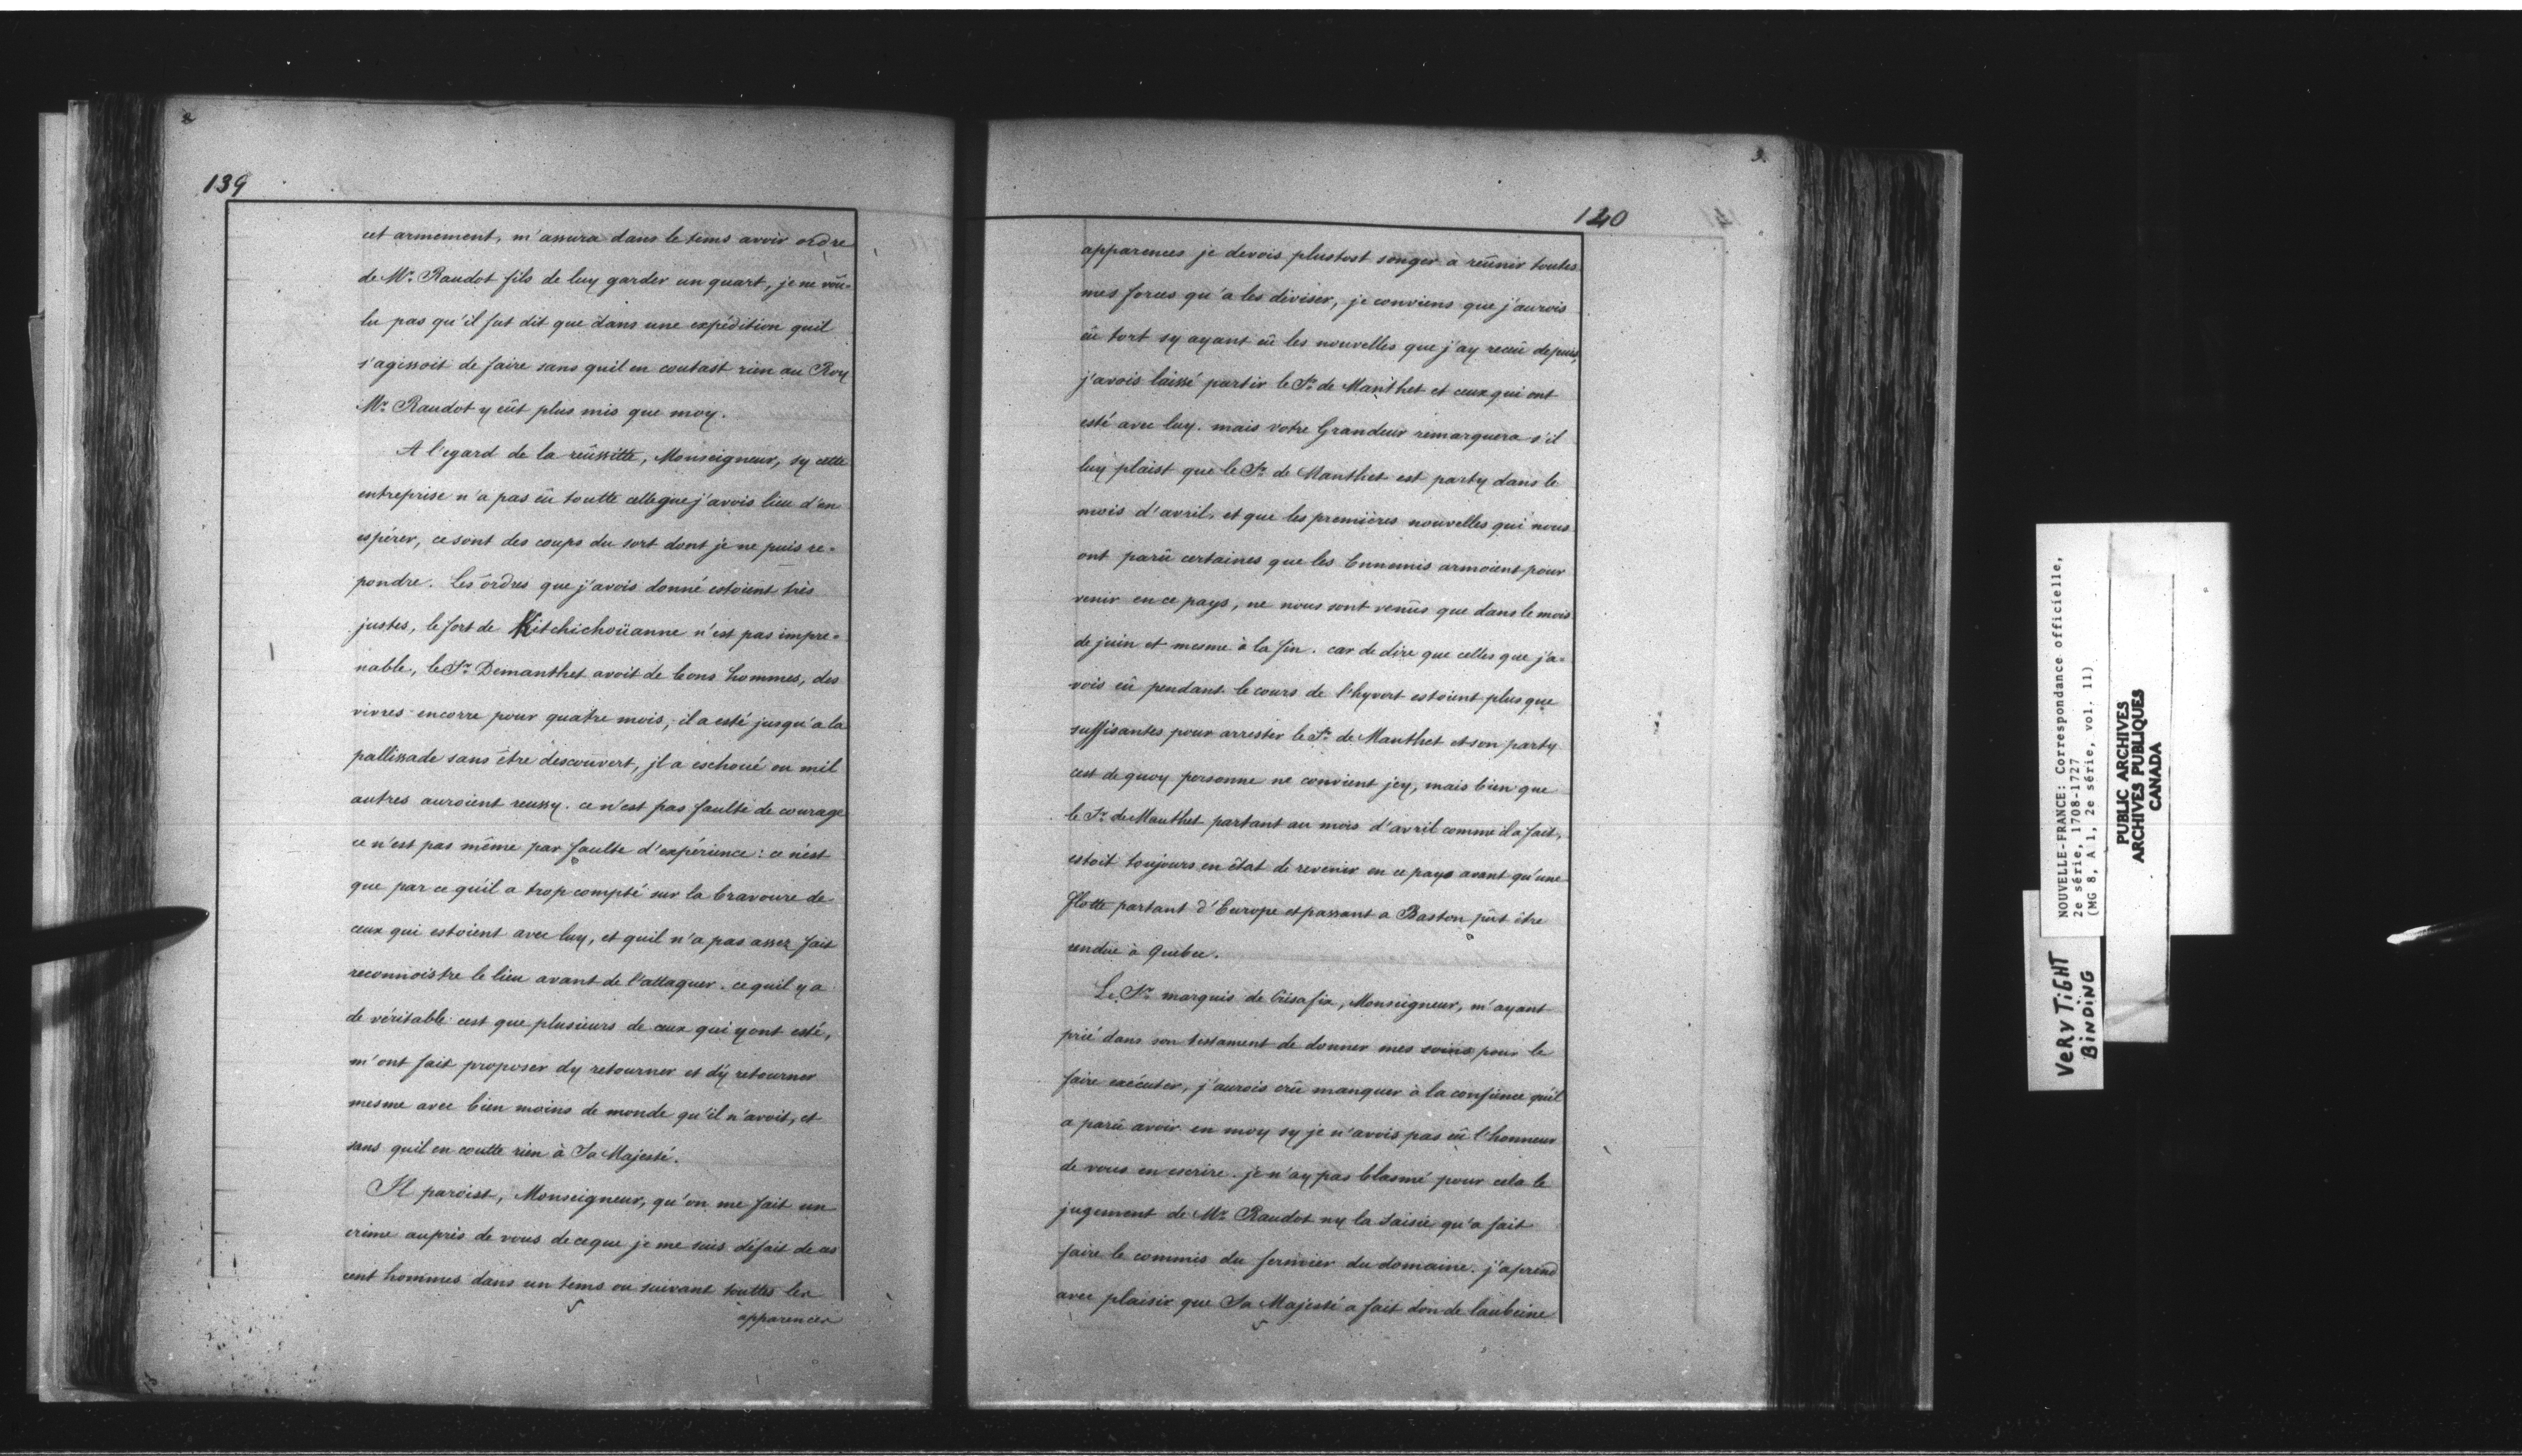 2
139
cet armement, m'assura dans le tems avoir ordre
de Mr. Raudot fils de luy garder un quart, je ne vou-
lu pas qu'il fut dit que dans une expédition quil
s'agissoit de faire sans quil en coutast rien au Roy
Mr. Raudot y eût plus mis que moy.
A l'egard de la reüssitte, Monseigneur, sy cette
entreprise n'a pas eü toutte celle que j'avois lieu d'en
espérer, ce sont des coups du sort dont je ne puis re-
pondre. Les ordres que j'avois donné estoient très
justes, le fort de Kitchichoüanne n'est pas impre-
nable, le Sr. Demanthet avoit de bons hommes, des
vivres encorre pour quatre mois, il a esté jusqu'a la
pallissade sans être descouvert, jl a eschoué ou mil
autres auroient reussy. ce n'est pas faulte de courage
ce n'est pas même par faulte d'expérience: ce n'est
que par ce qu'il a trop compté sur la bravoure de
ceux qui estoient avec luy, et quil n'a pas assez fait
reconnoistre le lieu avant de l'attaquer. ce quil y a
de véritable cest que plusieurs de ceux qui y ont esté,
m'ont fait proposer dy retourner et dy retourner
mesme avec bien moins de monde qu'il n'avoit, et
sans quil en coutte rien à Sa Majesté.
Il paroist, Monseigneur, qu'on me fait un
crime auprès de vous de ce que je me suis défait de ces
cent hommes dans un tems ou suivant touttes les
apparences
3.
140
apparences je devois plustost songer a reünir toutes
mes forces qu'a les diviser, je conviens que j'aurois
eü tort sy ayant eü les nouvelles que j'ay receü depuis,
j'avois laissé partir le Sr. de Manthet et ceux qui ont
esté avec luy. mais votre Grandeur remarquera s'il
luy plaist que le Sr. de Manthet est party dans le
mois d'avril, et que les premières nouvelles qui nous
ont parü certaines que les Ennemis armoient pour
venir en ce pays, ne nous sont venües que dans le mois
de juin et mesme à la fin. car de dire que celles que j'a-
vois eü pendant le cours de l'hyvert estoient plus que
suffisantes pour arrester le Sr. de Manthet et son party
cest de quoy personne ne convient jcy, mais bien que
le Sr. de Manthet partant au mois d'avril comme il a fait,
estoit toujours en état de revenir en ce pays avant qu'une
flotte partant d'Europe et passant a Baston pût être
rendue à Quebec.
Le Sr. marquis de Crisafix, Monseigneur, m'ayant
prié dans son testament de donner mes soins pour le
faire exécuter, j'aurois crü manquer à la confience qu'il
a parü avoir en moy sy je n'avois pas eü l'honneur
de vous en escrire. je n'ay pas blasmé pour cela le
jugement de Mr. Raudot ny la saisie qu'a fait
faire le commis du fermier du domaine. j'aprend
avec plaisir que Sa Majesté a fait don de laubeine
NOUVELLE-FRANCE: Correspondance officielle,
2e série, 1708-1727
(MG 8, A 1, 2e série, vol. 11)
PUBLIC ARCHIVES
ARCHIVES PUBLIQUES
CANADA
VERY TIGHT
BINDING